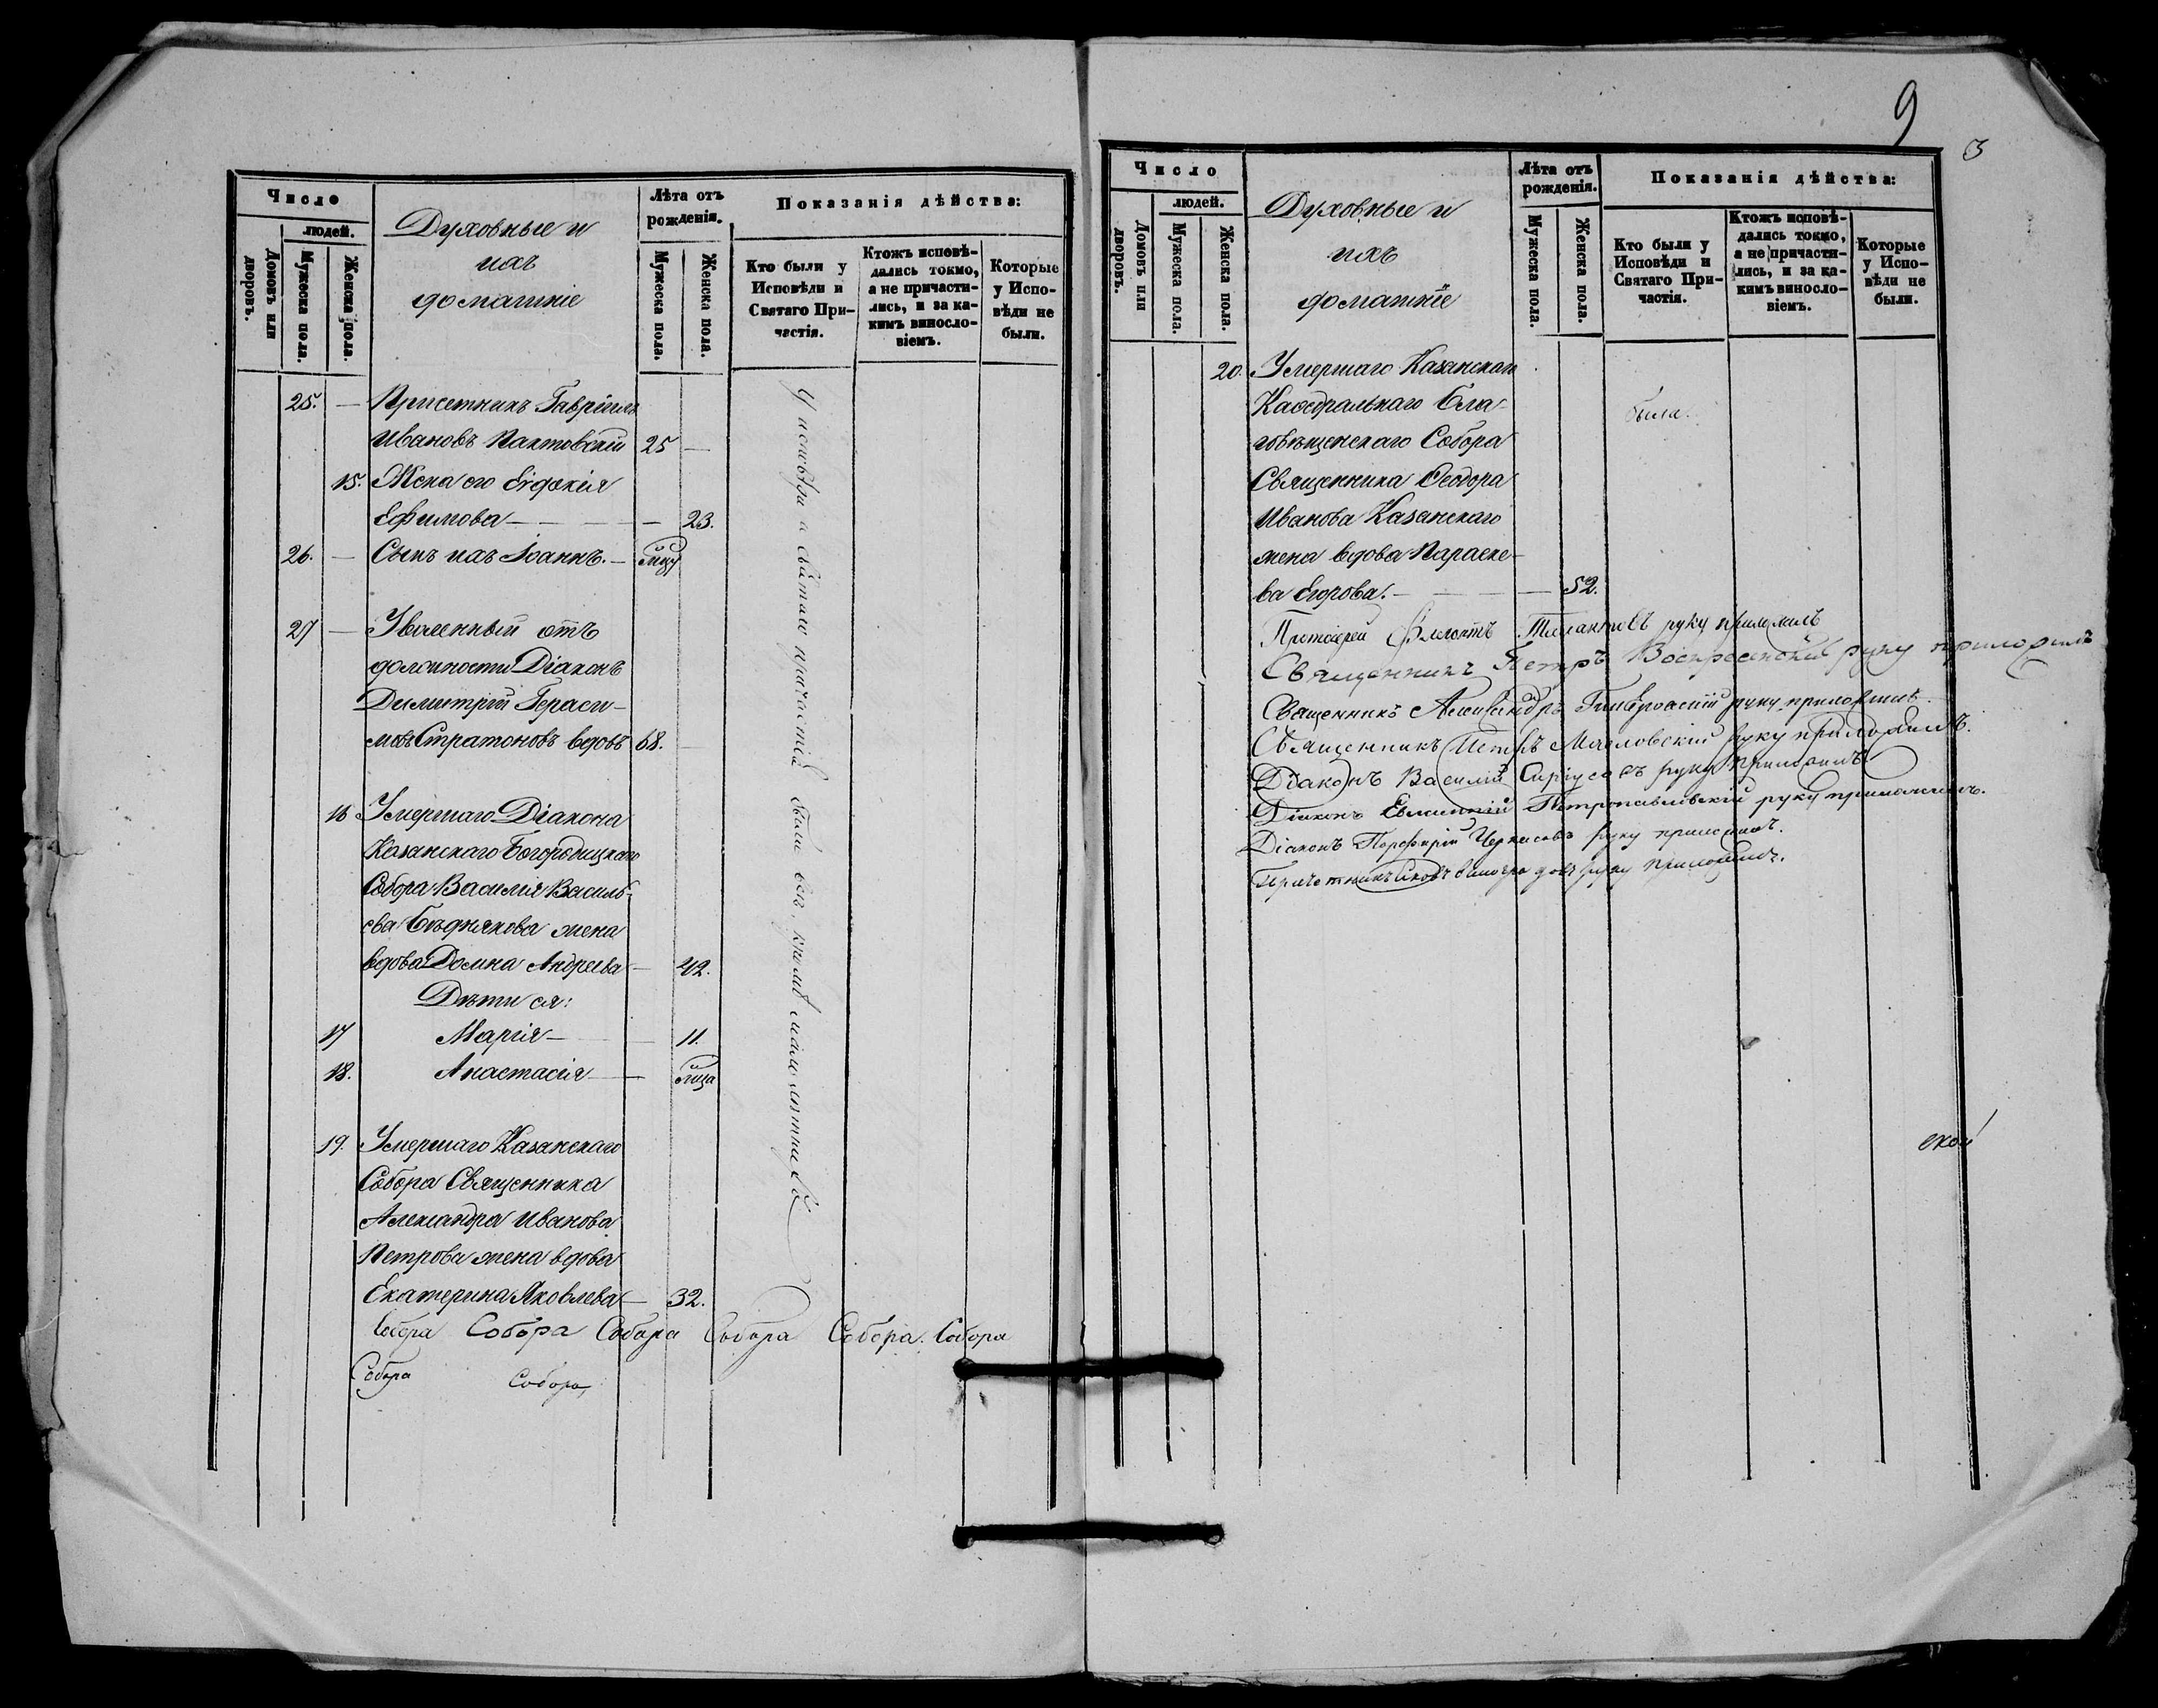 Число
людей.
Домовъ или дворовъ.
Мужеска пола.
Женска пола.
Духовные и
ихъ
домашніе
Лѣта отъ рожденія.
Мужеска пола.
Женска пола.
Показанія дѣйства:
Кто были у Исповѣди и Святаго Причастія.
Ктожъ исповѣдались токмо, а не причастились, и за какимъ винословіемъ.
Которые у Исповѣди не были.
25. — Причетникъ Гавріилъ
Ивановъ Пактовскій 25 —
15. Жена его Евдокія
Ефимова — — 23.
26. — Сынъ ихъ Іоаннъ. —
27 — Уволенный отъ
должности Діаконъ
Димитрій Гераси-
мовъ Стратоновъ вдовъ 68. —
16 Умершаго Діакона
Казанскаго Богородицкаго
Собора Василія Василь-
ева Бѣднякова жена
вдова Домна Андреева — 42.
Дѣти ея:
17 Марія — — 11.
18. Анастасія —
19. Умершаго Казанскаго
Собора Священника
Александра Иванова
Петрова жена вдова
Екатерина Яковлева — 32.
Собора Собора Собора Собора Собора. Собора
Собора Собора
У исповѣди и святаго причастія были всѣ, кромѣ малолѣтнихъ
9
Число
людей.
Домовъ или дворовъ.
Мужеска пола.
Женска пола.
Духовные и
ихъ
домашніе
Лѣта отъ рожденія.
Мужеска пола.
Женска пола.
Показанія дѣйства:
Кто были у Исповѣди и Святаго Причастія.
Ктожъ исповѣдались токмо, а не причастились, и за какимъ винословіемъ.
Которые у Исповѣди не были.
20. Умершаго Казанскаго
Каѳедральнаго Бла-
говѣщенскаго Собора
Священника Ѳеодора
Иванова Казанскаго
жена вдова Параске-
ва Егорова. — — 52.
была.
Протоіерей руку приложилъ
Священникъ Петръ Воскресенскій руку приложилъ
Священникъ Александръ руку приложилъ
Священникъ Петръ Масловскій руку приложилъ.
Діаконъ Василій руку приложилъ
Діаконъ Евлампій Петропавловскій руку приложилъ.
Діаконъ Порфирій Черкасовъ руку приложилъ.
Причетникъ Іаковъ Виноградовъ руку приложилъ.